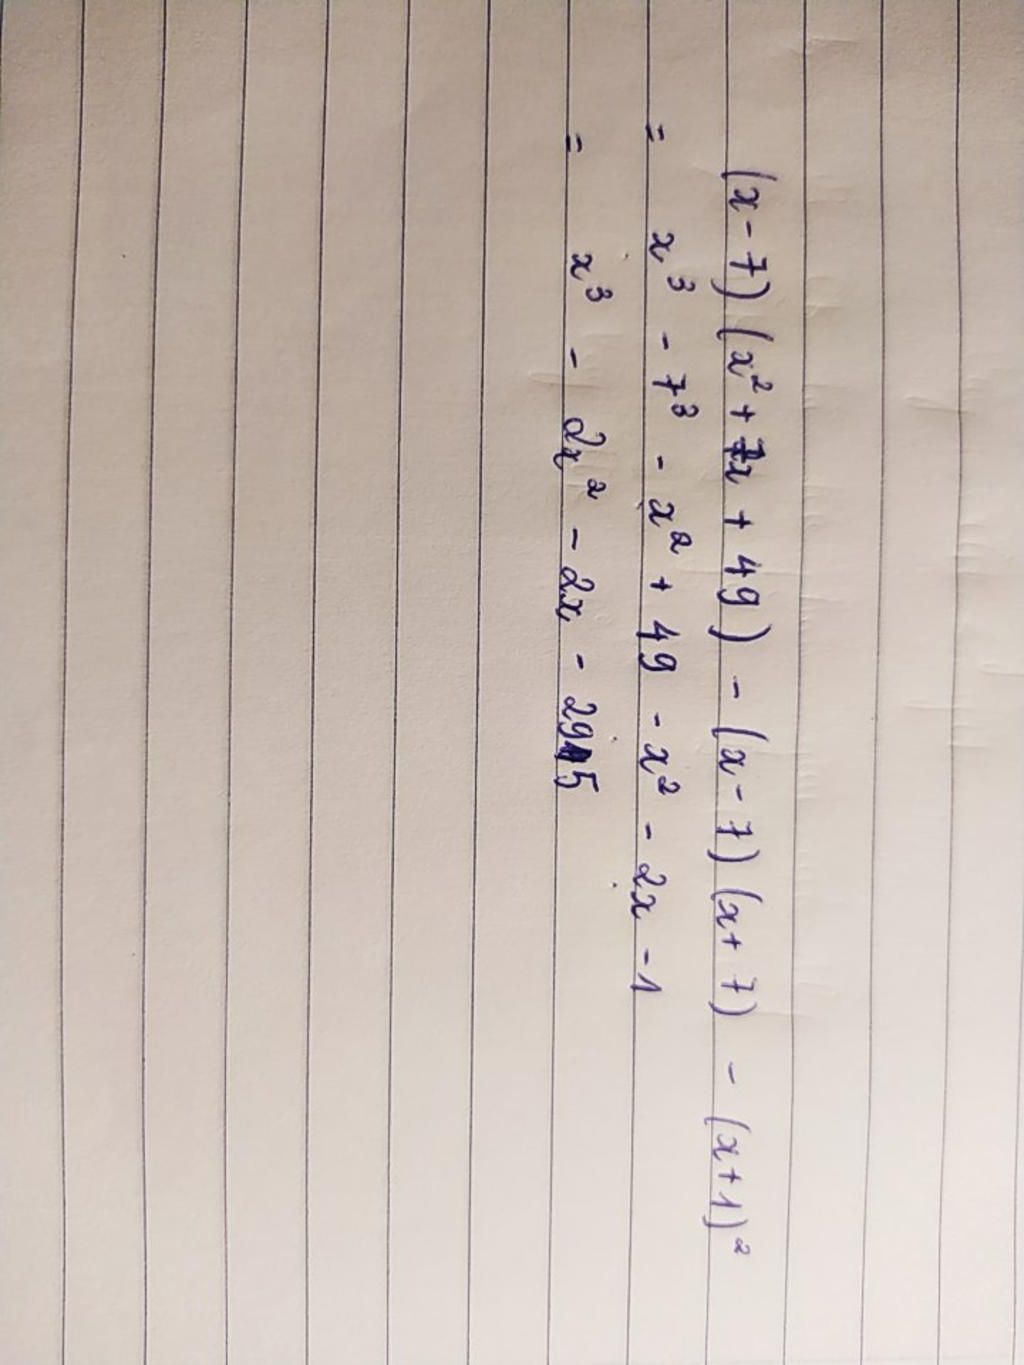 (x-7)(x²+7x+49) - (x-7)(x+7) - (x+1)²
= x³ - 7³ - x² + 49 - x² - 2x - 1
= x³ - 2x² - 2x - 295